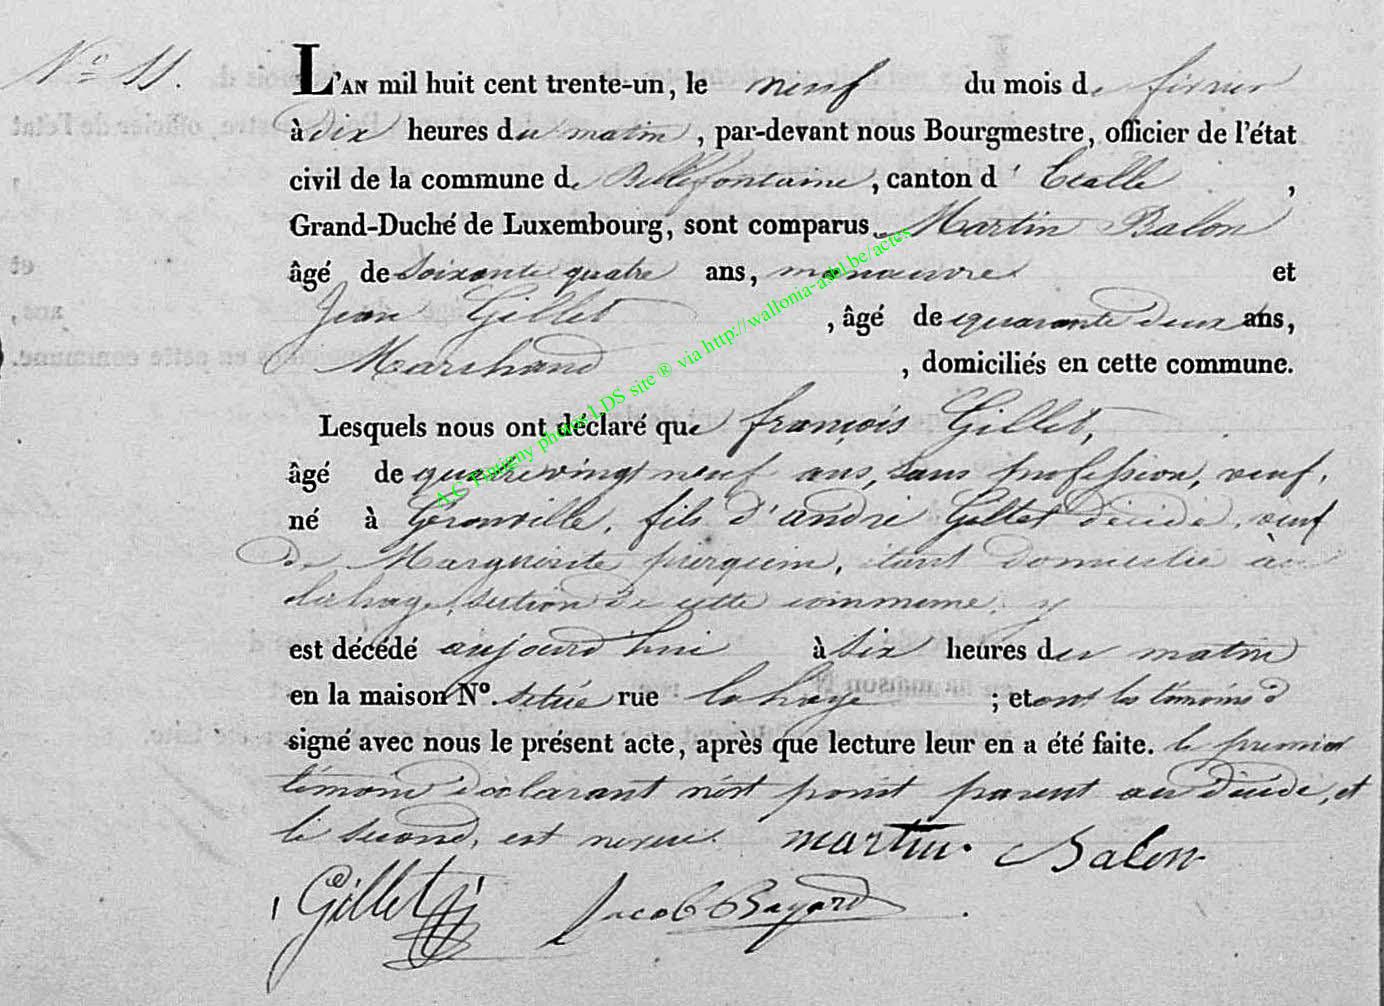 N.º 11.
L'AN mil huit cent trente-un, le neuf du mois de février
à dix heures du matin, par-devant nous Bourgmestre, officier de l'état
civil de la commune de Bellefontaine, canton d'Etalle,
Grand-Duché de Luxembourg, sont comparus Martin Balon
âgé de soixante quatre ans, manœuvre et
Jean Gillet, âgé de quarante deux ans,
Marchand, domiciliés en cette commune.
Lesquels nous ont déclaré que françois Gillet,
âgé de quatre vingt neuf ans, sans profession, veuf,
né à Gérouville, fils d'andré Gillet décédé, veuf
de Marguerite pierquin, étant domicilié à
lahage, section de cette commune, y
est décédé aujourd'hui à six heures du matin
en la maison N.º située rue lahage ; et ont les témoins
signé avec nous le présent acte, après que lecture leur en a été faite. le premier
témoin déclarant n'est point parent au décédé, et
le second, est neveu. martin Balon
Gillet Jacob Bayard
A.C Tintigny photos LDS site ® via http://wallonia-asbl.be/actes